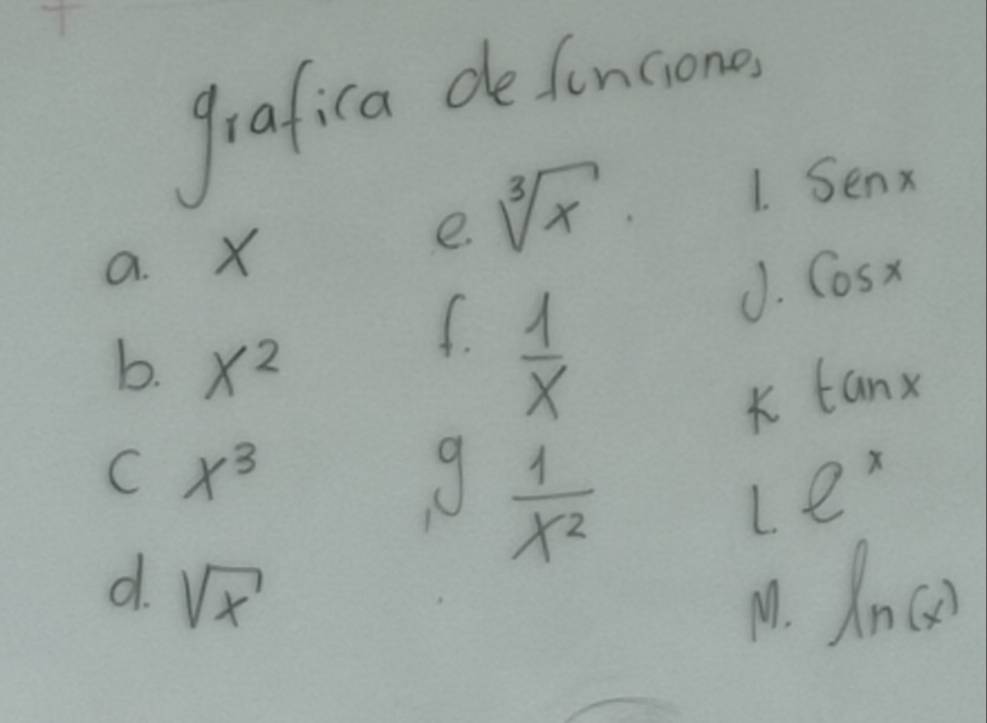 grafica de funciones
a. x
b. x²
c x³
d. √x
e. ∛x.
f. 1/x
g 1/x²
I. Senx
J. Cosx
K tanx
L. eˣ
M. ln(x)